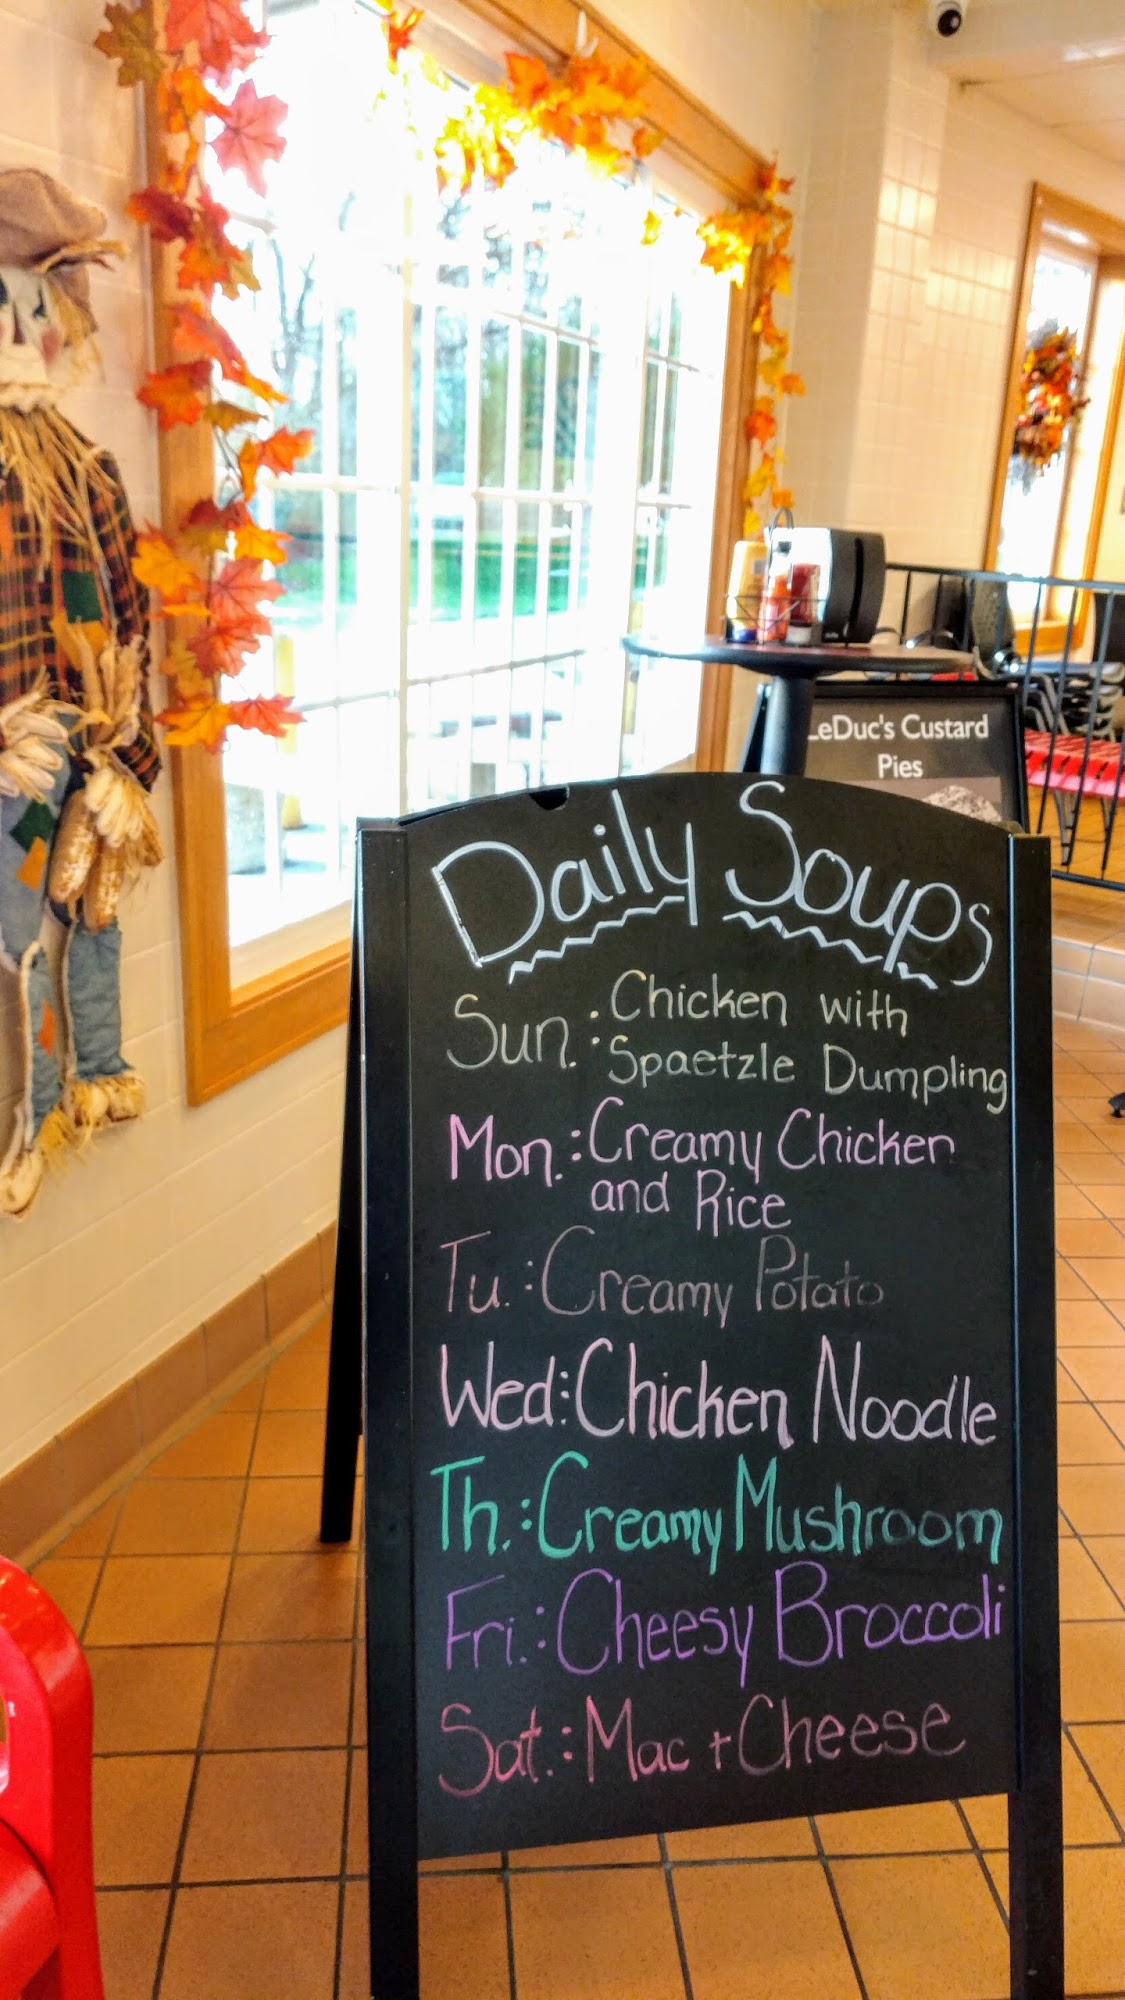 LeDuc's Custard
Pies
Daily Soups
Sun.: Chicken with
Spaetzle Dumpling
Mon.: Creamy Chicken
and Rice
Tu.: Creamy Potato
Wed: Chicken Noodle
Th.: Creamy Mushroom
Fri.: Cheesy Broccoli
Sat.: Mac + Cheese